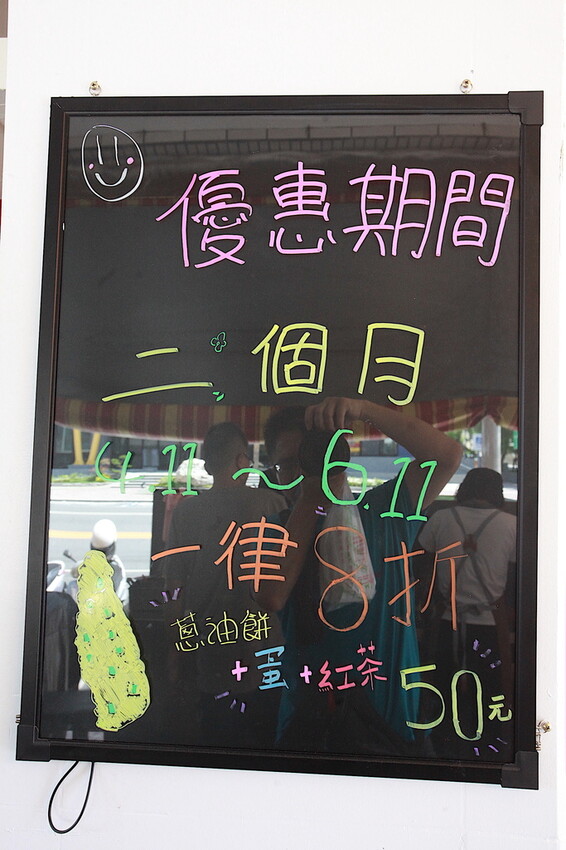 優惠期間
二個月
4.11～6.11
一律8折
蔥油餅
+蛋+紅茶 50元